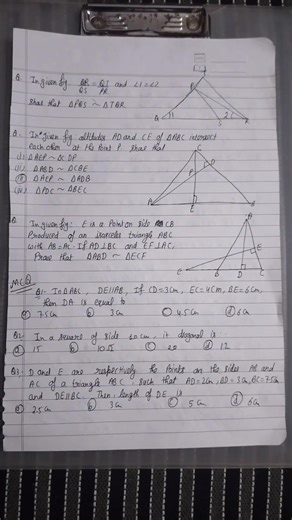 Q. In given fig QR/QS = QT/PR and ∠1 = ∠2
Show that △PQS ~ △TQR
Q. In given fig altitudes AD and CE of △ABC intersect
each other at the Point P. show that
(i) △AEP ~ △CDP
(ii) △ABD ~ △CBE
△AEP ~ △ADB
△PDC ~ △BEC
Q. In given fig: E is a Point on side CB
Produced of an isosceles triangle ABC
with AB = AC. If AD⊥BC and EF⊥AC,
Prove that △ABD ~ △ECF
MCQ
Q1: In △ABC, DE||AB, If CD = 3cm, EC = 4cm, BE = 6cm,
then DA is equal to
a 7.5cm b 3cm c 4.5cm d 6cm
Q2: In a square of side 10cm, it diagonal is
a 15 b 10√2 c 20 d 12
Q3: D and E are respectively the Points on the sides AB and
AC of a triangle ABC, such that AD = 2cm, BD = 3cm, BC = 7.5cm
and DE||BC. Then length of DE is
a 2.5cm b 3cm c 5cm d 6cm